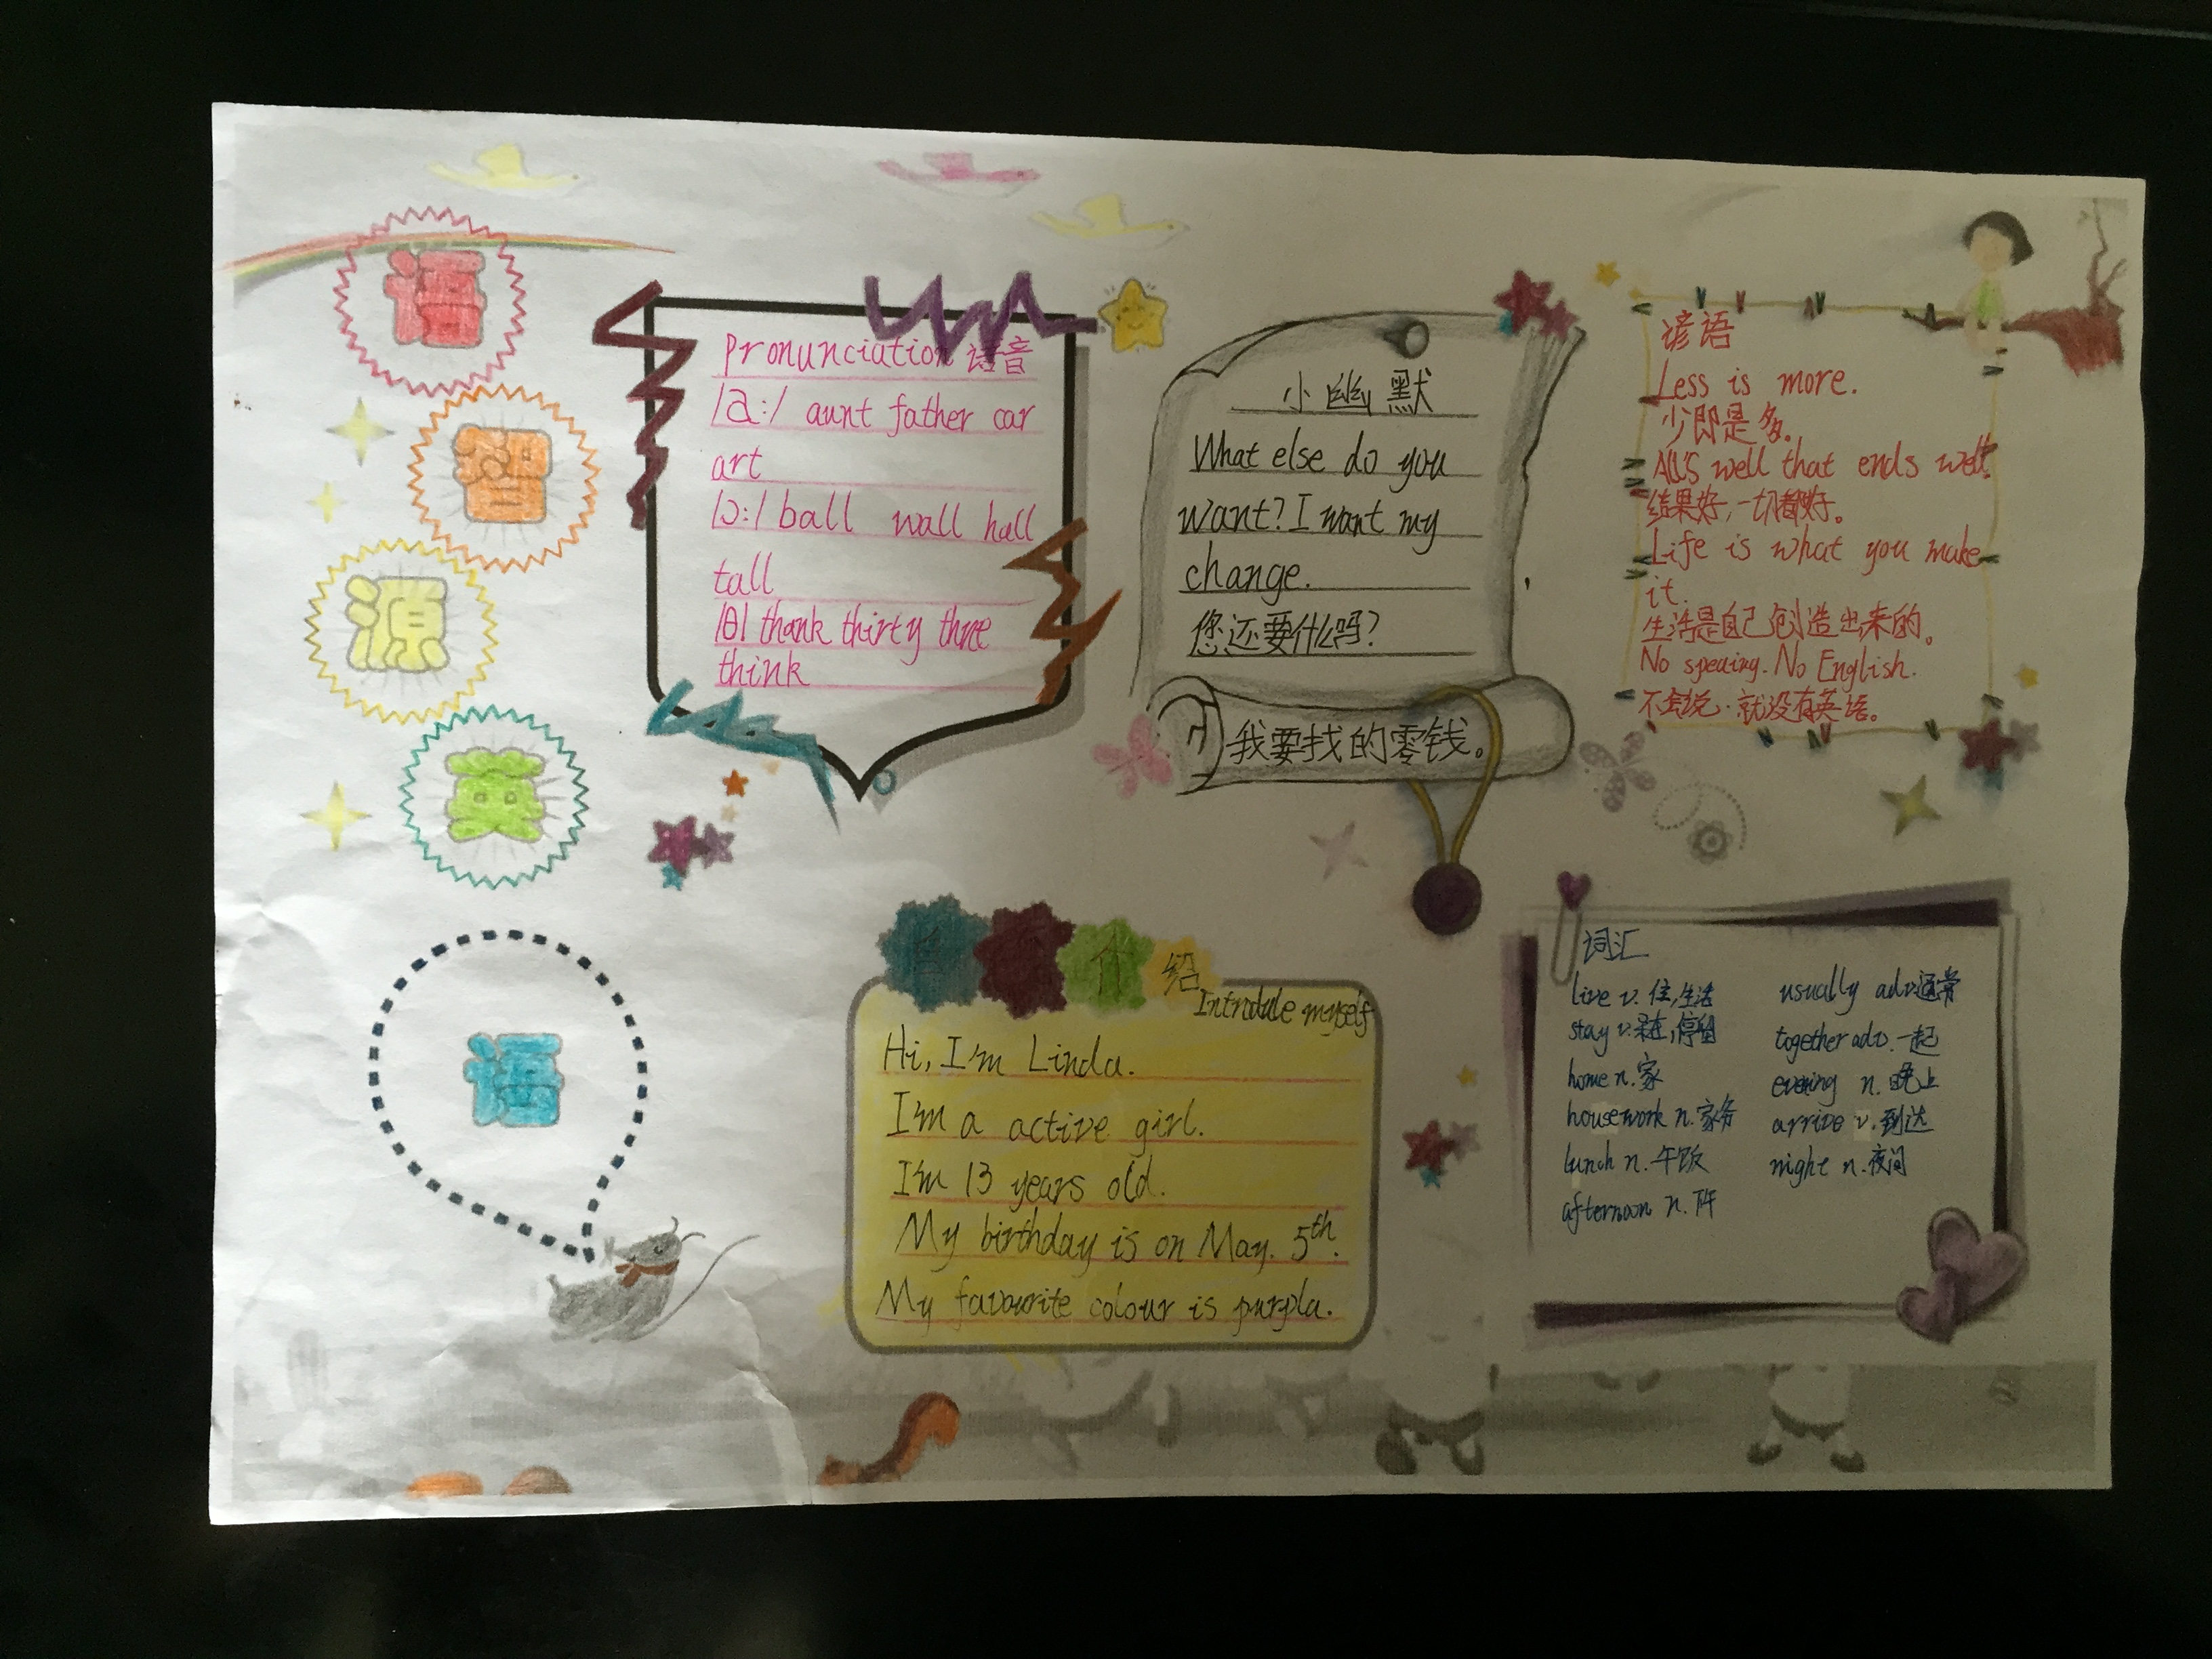 语
智
源
英
语
Pronunciation 语音
/a:/ aunt father car
art
/ɔ:/ ball wall hall
tall
/θ/ thank thirty three
think
小幽默
What else do you
want? I want my
change.
您还要什么吗?
我要找的零钱。
谚语
Less is more.
少即是多。
All's well that ends well.
结果好,一切都好。
Life is what you make
it.
生活是自己创造出来的。
No speaing. No English.
不会说,就没有英语。
介绍
myself
Hi, I'm Linda.
I'm a active girl.
I'm 13 years old.
My birthday is on May. 5th.
My favourite colour is purpla.
词汇
live v. 住,生活
stay v. 停留
home n. 家
housework n. 家务
lunch n. 午饭
afternoon n. 下午
usually adv. 通常
together adv. 一起
evening n. 晚上
arrive v. 到达
night n. 夜间